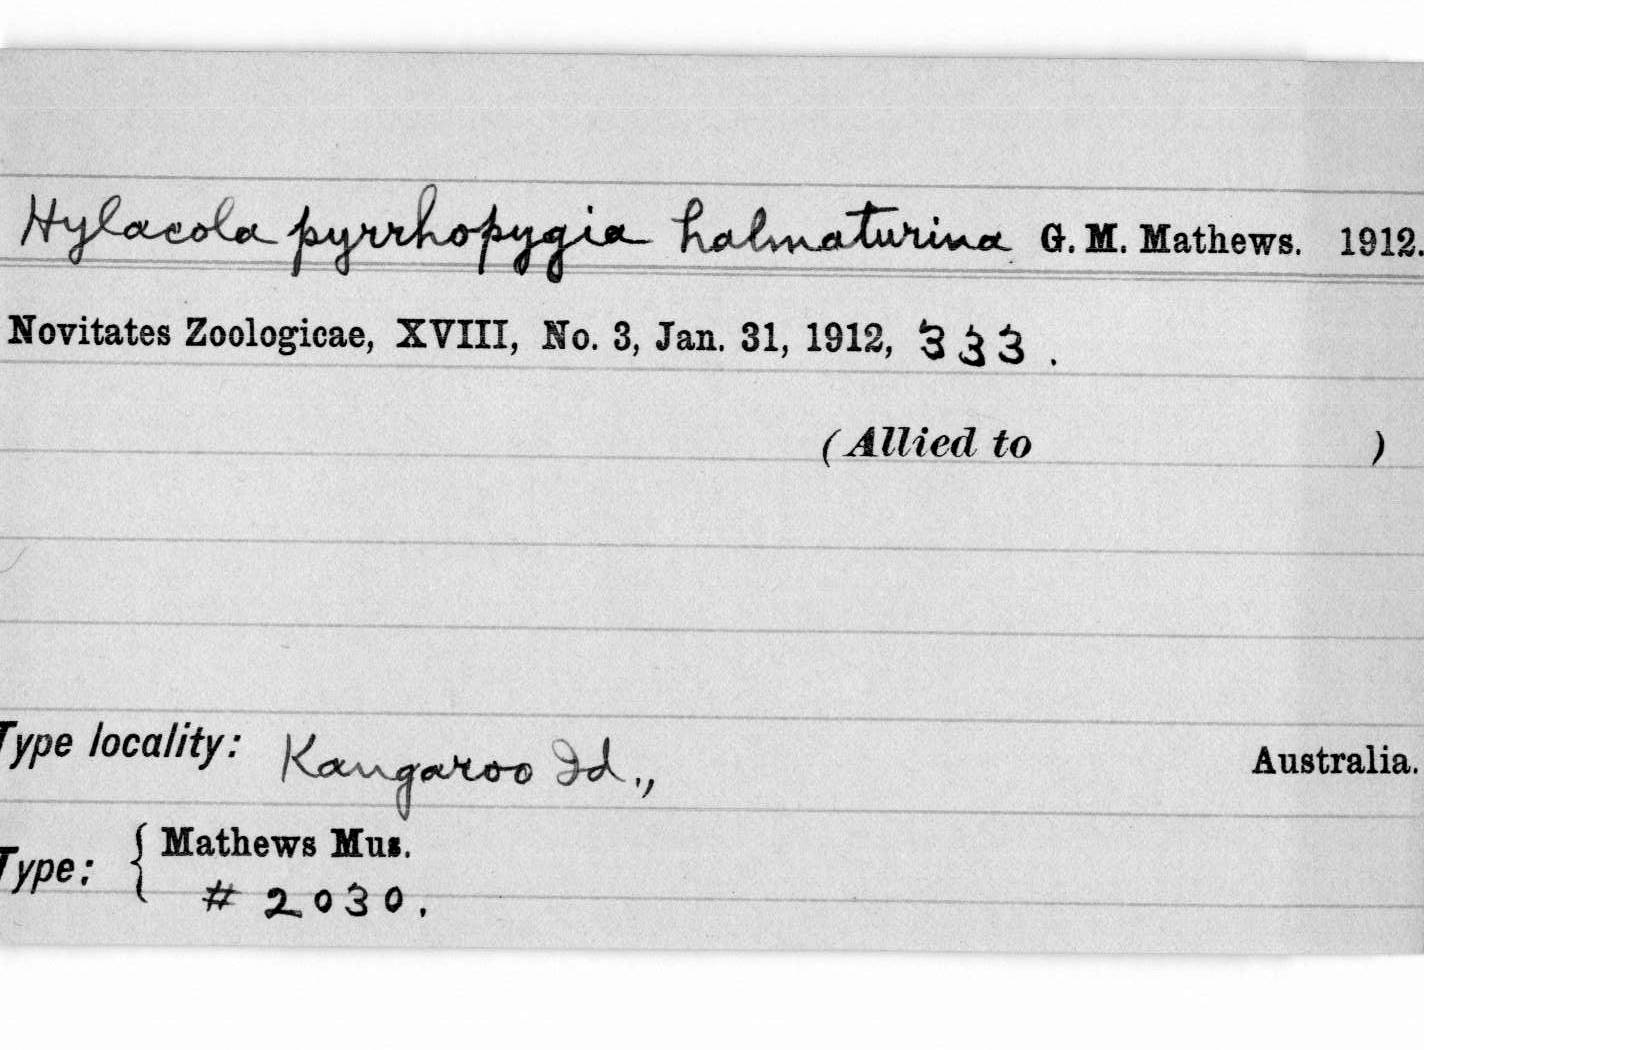 Hylacola pyrrhopygia halmaturina G. M. Mathews. 1912.
Novitates Zoologicae, XVIII, No. 3, Jan. 31, 1912, 333.
(Allied to )
Type locality: Kangaroo Id., Australia.
Type: { Mathews Mus.
# 2030.